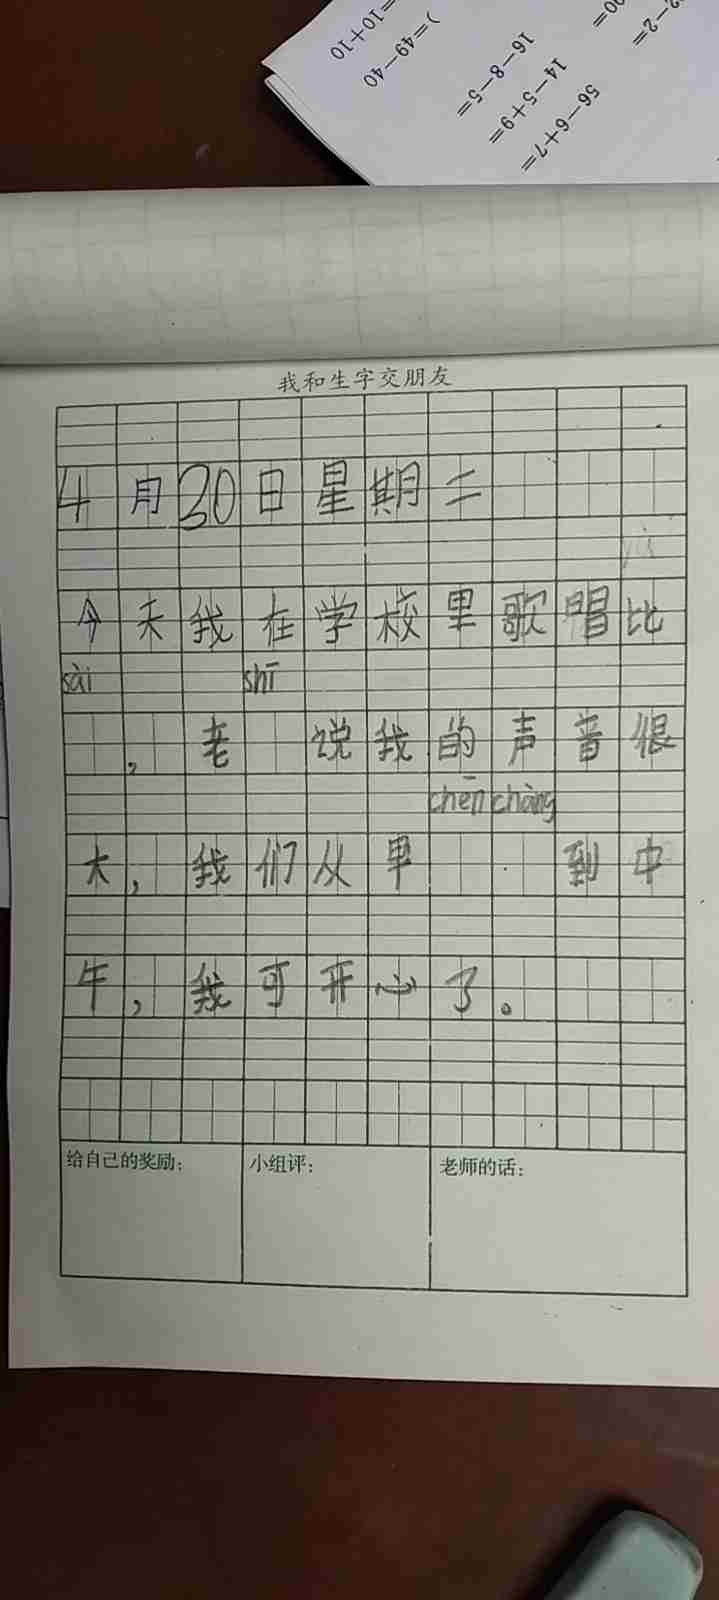 =10+10
)=49-40
16-8-5=
14-5+9=
56-6+7=
00=
2-2=
我和生字交朋友
4月30日星期二
今天我在学校里歌唱比
sài shī
，老 说我的声音很
chēn chàng
大，我们从早 到中
午，我可开心了。
给自己的奖励：
小组评：
老师的话：